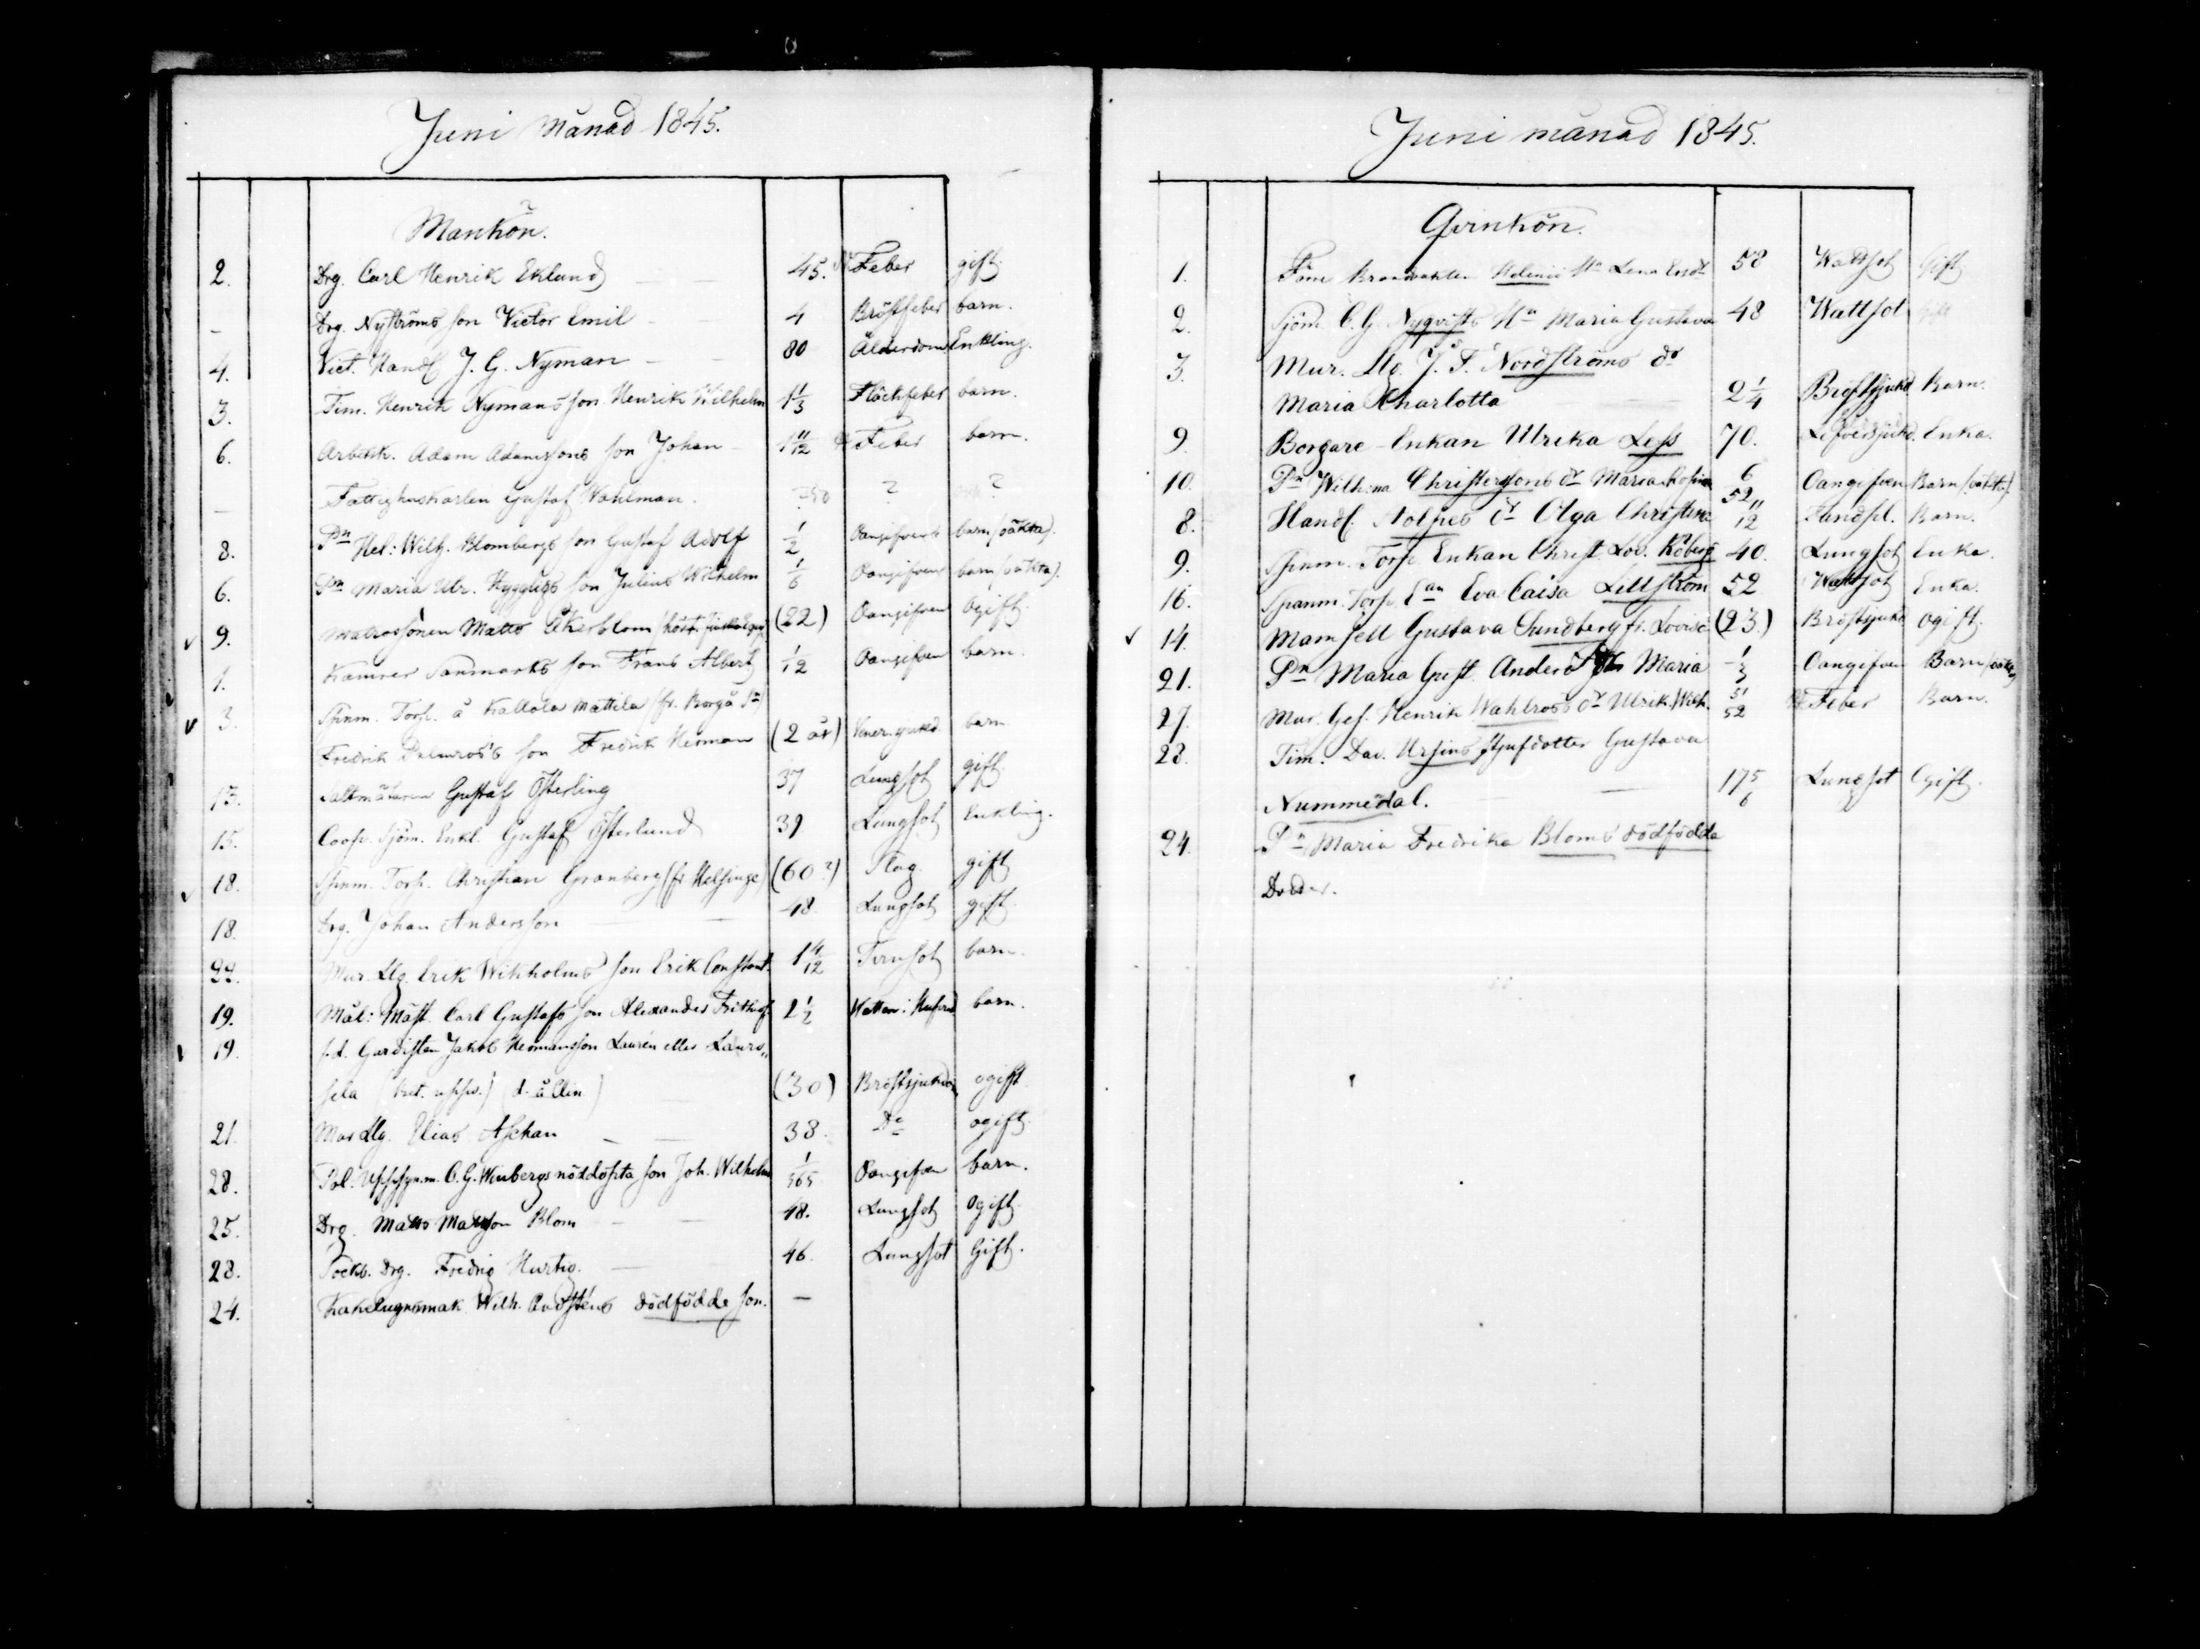 Juni månad 1845.
Mankön.
2. Drg. Carl Henrik Eklund 45. Feber gift.
Drg. Nyströms son Victor Emil 4 Bröstfeber barn.
4. Vict. Handl J. G. Nyman 80 Ålderdom Enkling.
3. Tim. Henrik Nymans son Henrik Wilhelm 1 1/3 Fläckfeber barn.
6. Arbetsk. Adam Adamssons son Johan 1 11/12 Feber barn.
Fattighuskarlen Gustaf Wahlman. ? ?
8. Pn Hel: Wilh. Blombergs son Gustaf Adolf 1/2 Oangifven barn (oäkta).
6. Pn Maria Ulr. Hyggligs son Julius Wilhelm 1/6 Oangifven barn (oäkta).
9. Matrossonen Matts Åkerblom (22) Oangifven Ogift.
1. Kamrer Sanmarks son Frans Albert 1/12 Oangifven barn.
3. Spnm. Torp. å Kallola Mattila (fr. Borgå Sn)
Fredrik Palmroos son Fredrik Herman (2 år) Vener. sjukd. barn
13. Saltmätaren Gustaf Österling 37 Lungsot gift
15. Coop. Sjöm. Enkl. Gustaf Österlund 39 Lungsot Enkling.
18. Spnm. Torp. Christian Granberg (fr Helsinge) (60?) Slag. gift
18. Drg. Johan Andersson 48. Lungsot gift.
22. Mur. Llg. Erik Wikholms son Erik Constant. 1 4/12 Tvinsot barn.
19. Mål: Mäst. Carl Gustafs son Alexander Frithiof 2 1/2 Watten: barn.
19. f.d. Gardisten Jakob Hermansson Laurén eller Laurs,,
sela (30) Bröstsjukdom ogift
21. Mar Llg. Elias Aschan 38. Do ogift.
28. Pol. Uppsynm. C. G. Wenbergs nöddöpta son Joh. Wilhelm 1/365 Oangifven barn.
25. Drg. Matts Mattsson Blom 48. Lungsot Ogift.
23. Pock. Drg. Fredrig Hurtig. 46. Lungsot Gift.
24. Kakelugnsmak. Wilh. Qvisténs dödfödde son. —
Juni månad 1845.
Qvinkön.
1. Förre Brandvakten Helenii Hu Lena 58 Wattsot Gift
2. Sjöm. C. G. Nyqvists Hu Maria Gustava 48 Wattsot Gift
3. Mur. Llg. J. F. Nordströms dr
Maria Charlotta 2 1/4 Bröstsjukd. Barn.
9. Borgare-Enkan Ulrika Less 70. Lefversjukd. Enka.
10. Pn Wilh:na Christersons dr Maria Rosina 6/52 Oangifven Barn (oäkta).
8. Handl. Nolpies dr Olga Christina 11/12 Barn.
9. Spnm. Torp. Enkan Christ. Lov. Köberg 40. Lungsot Enka.
16. Spanm. Torp. Ean Eva Caisa Lillström 52 Wattsot Enka.
14. Mamsell Gustava Sundberg fr. Lovisa (23.) Bröstsjukd. ogift.
21. Pn Maria Gust. Anders dr Maria 1/3 Oangifven Barn (oäkta)
27. Mur. Ges. Henrik Wahlroos dr Ulrik. Wilh. 51/52 Feber Barn.
23. Tim. Dav. Ursins Styfdotter Gustava
Nummedal. 17 5/6 Lungsot Ogift.
24. Pn Maria Fredrika Bloms dödfödda
Dotter.